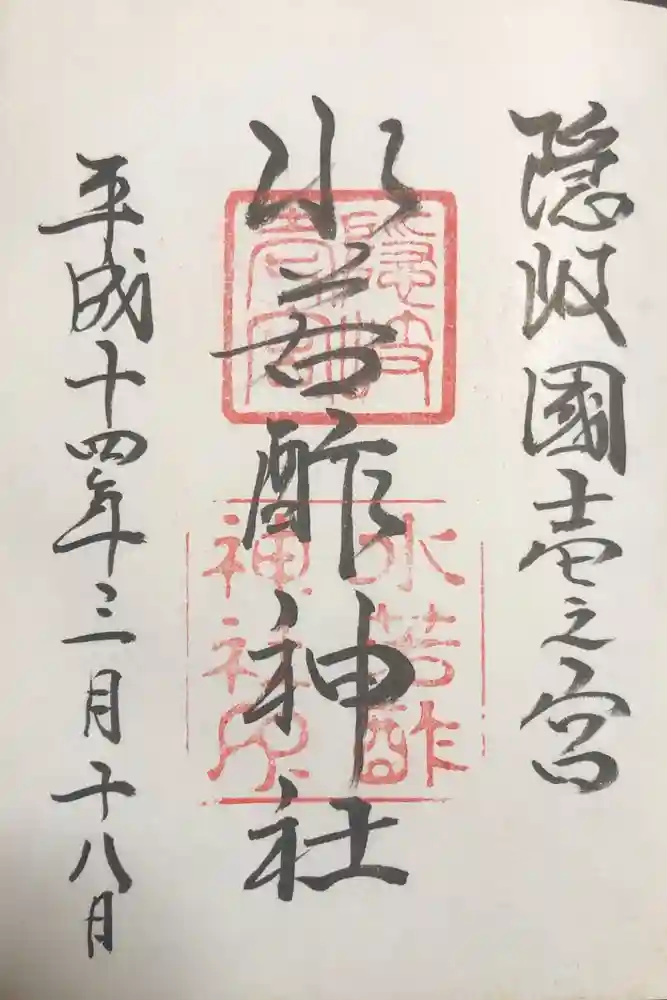 隠岐國壱之宮
水若酢神社
平成十四年三月十八日
隠岐
壱宮
水若酢
神社